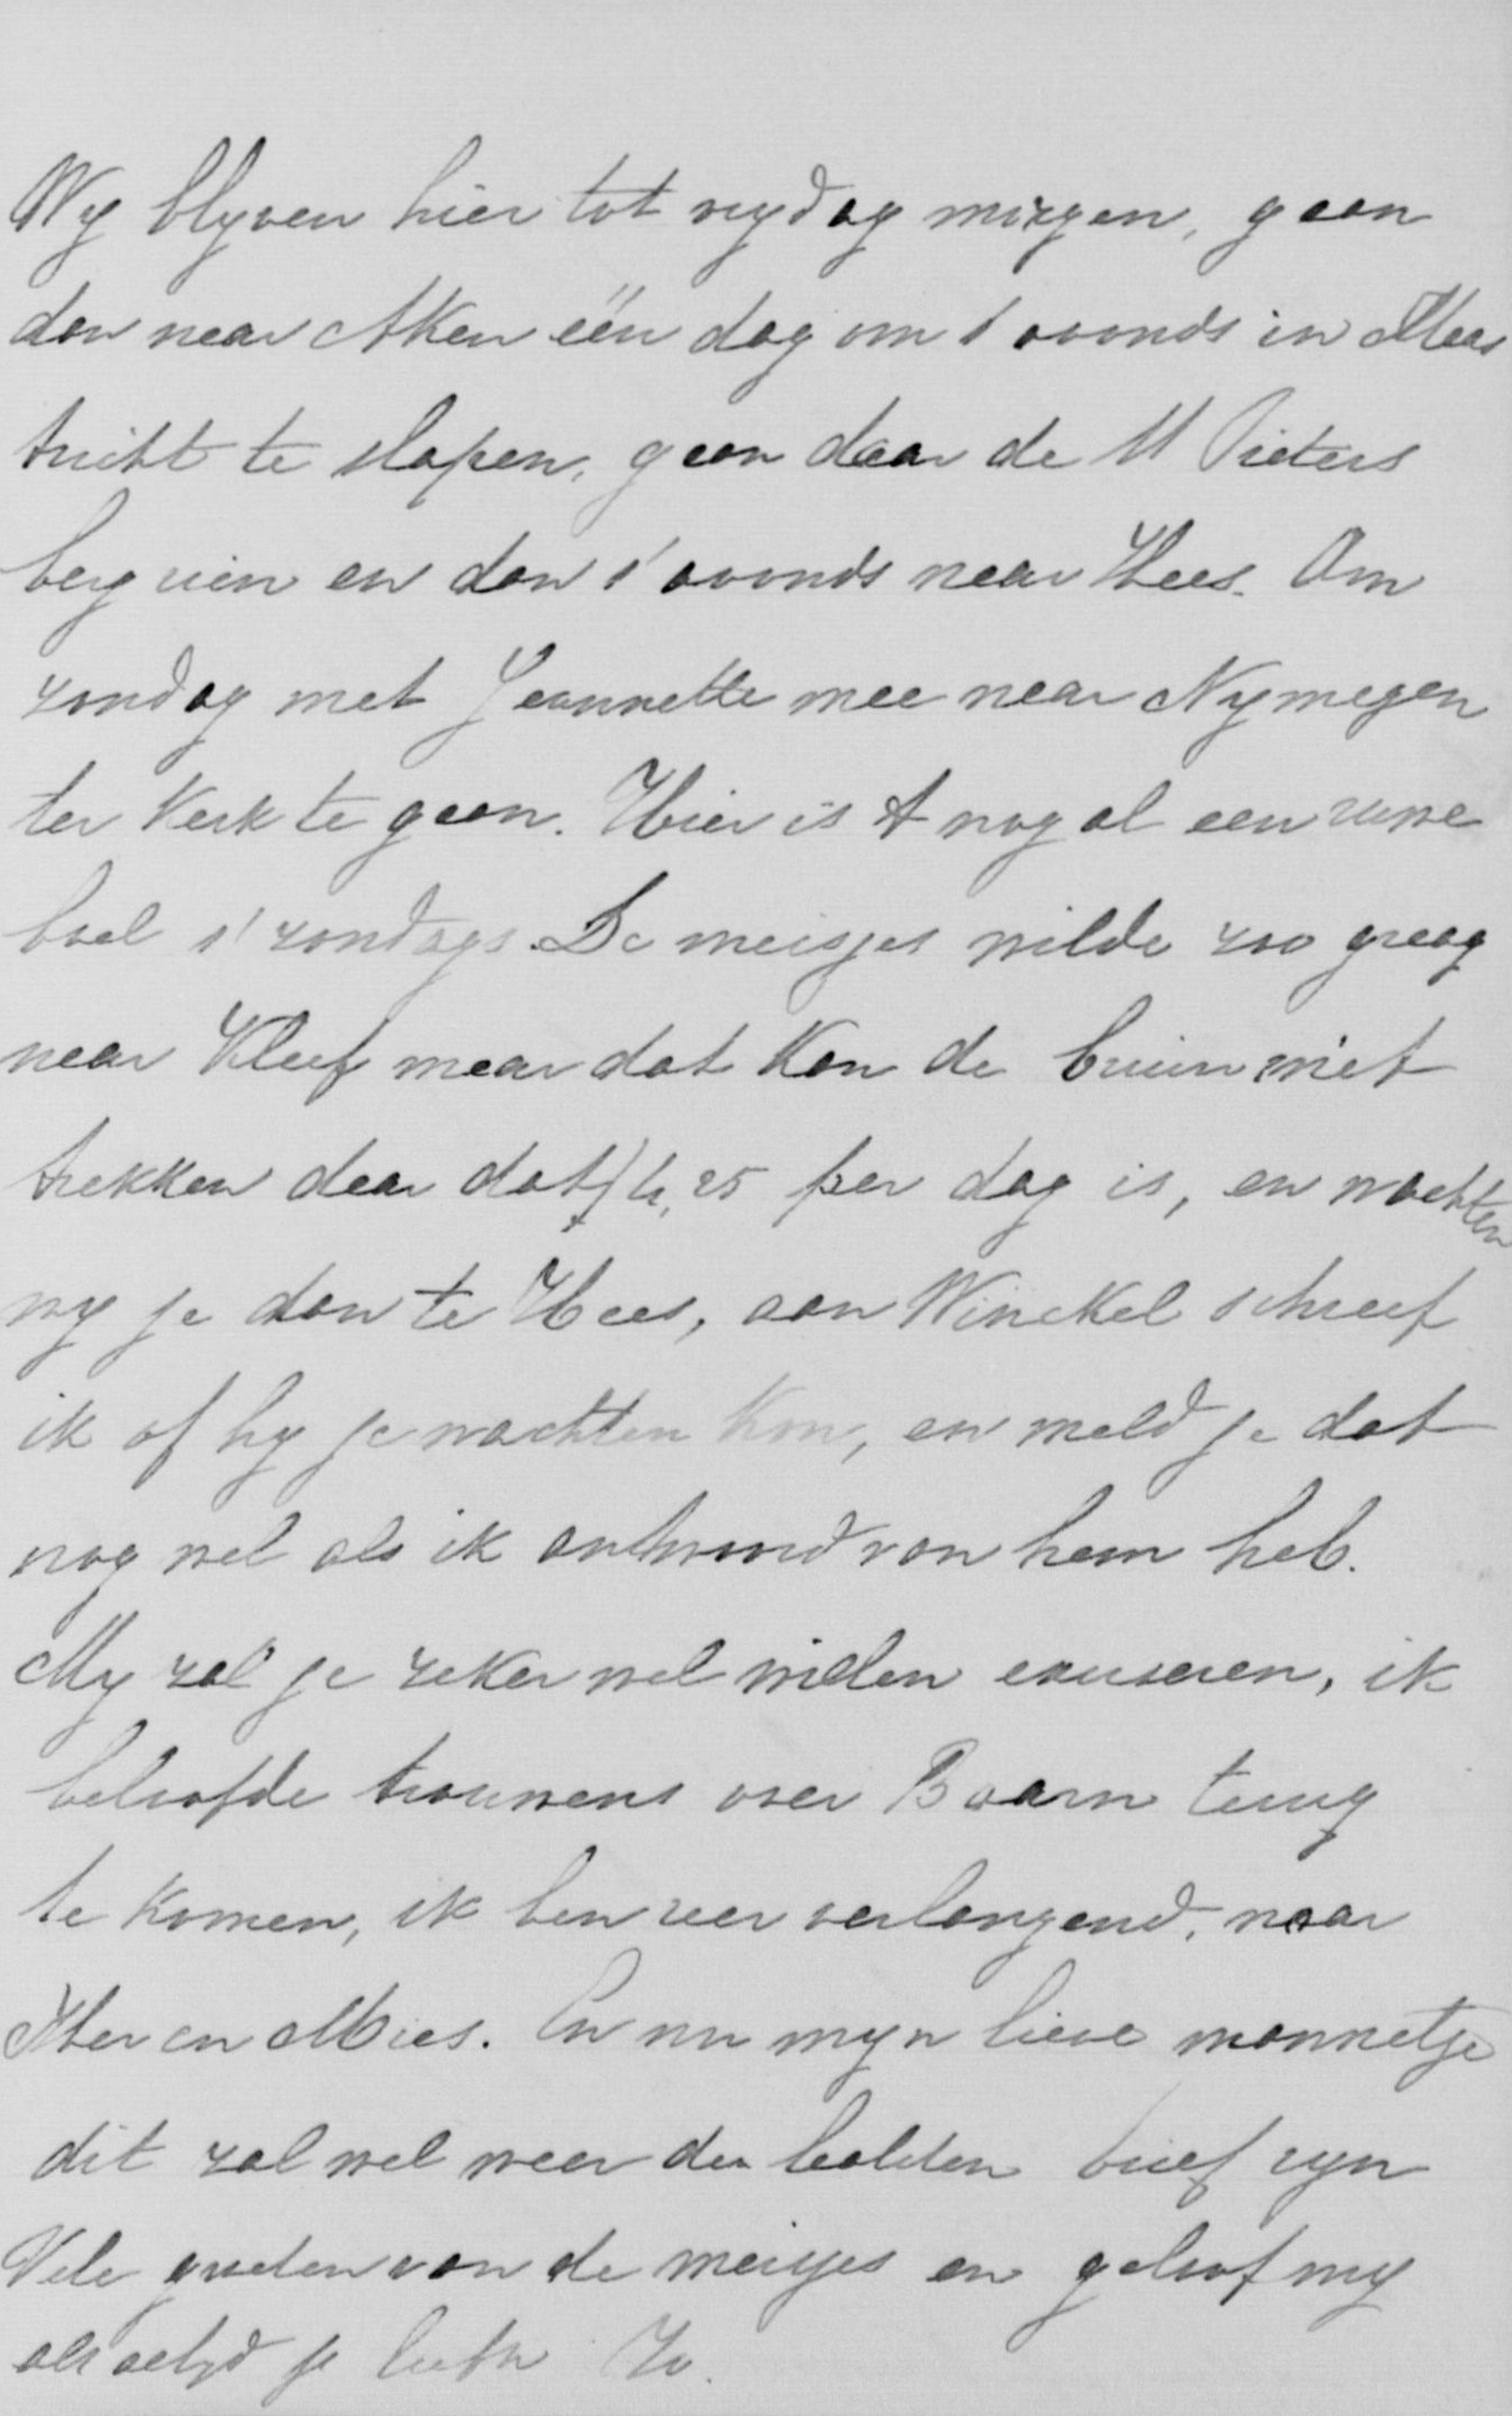 Wy blyven hier tot vrydag morgen, gaan
dan naar Aken één dag om s'avonds in Maas
tricht te slapen, gaan daar de St Pieters
berg zien en dan s'avonds naar Hees. Om
zondag met Jeannette mee naar Nymegen
ter Kerk te gaan. Hier is 't nog al een ruwe
boel s'zondags. De meisjes wilde zoo graag
naar Kleef maar dat kon de bruin niet
trekken daar dat f 4,25 per dag is, en wachten
wy je dan te Hees, aan Winckel schreef
ik of hy je wachten kon, en meld je dat
nog wel als ik antwoord van hem heb.
My zal je zeker wel willen excuseren, ik
beloofde trouwens over Baarn terug
te komen, ik ben zeer verlangend, naar
Her en Mies. En nu myn lieve mannetje
dit zal wel weer de laatsten brief zyn
Vele groeten van de meisjes en geloof my
als altyd je liefh Jo.